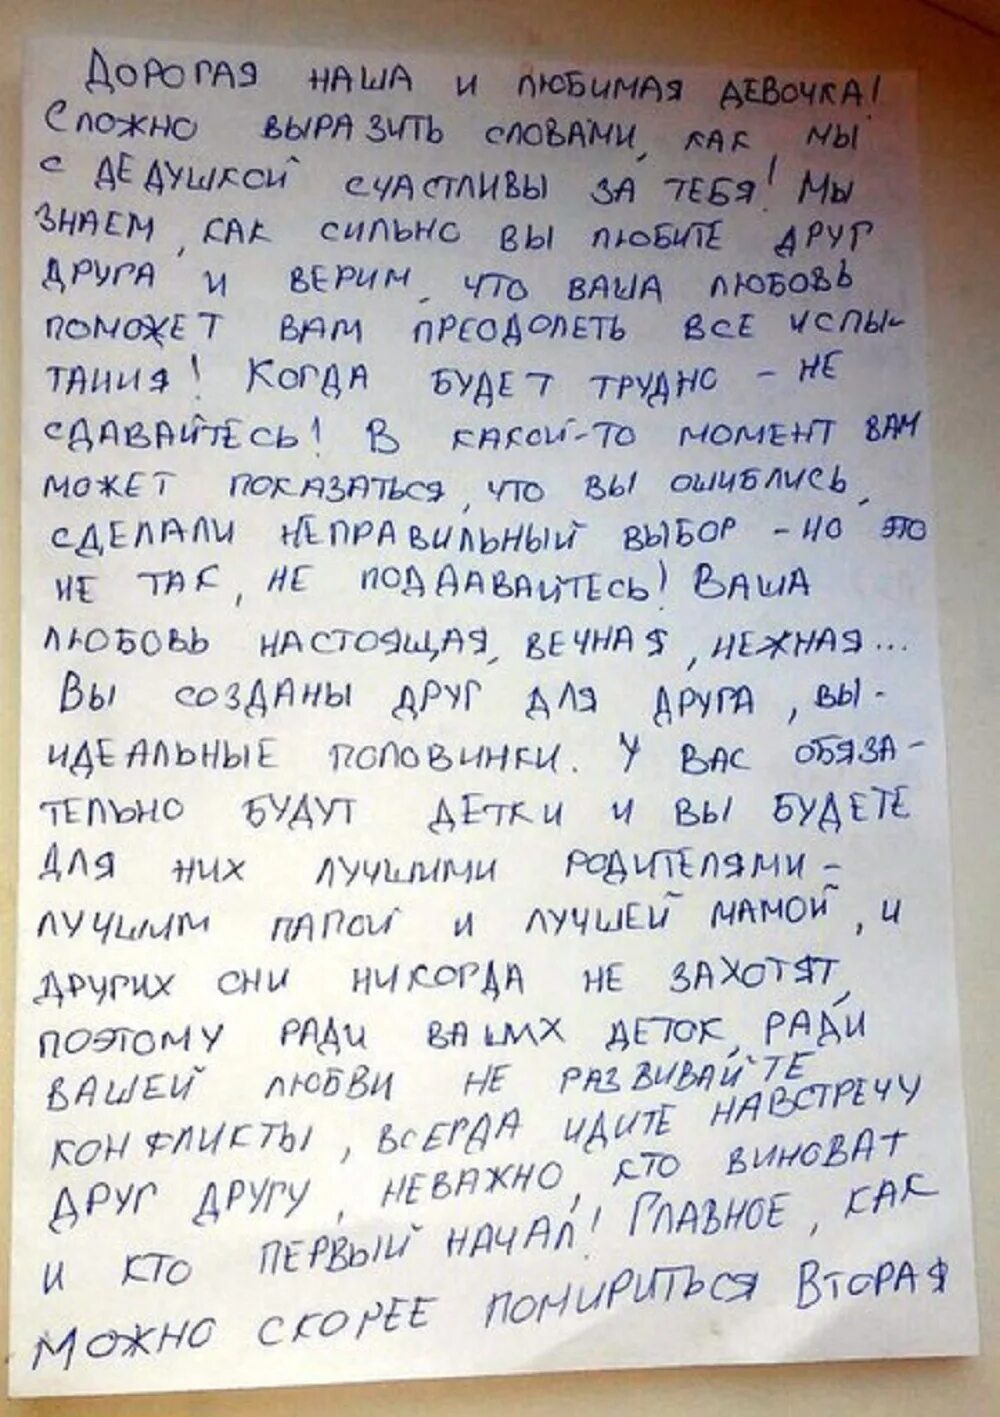 Дорогая наша и любимая девочка!
Сложно выразить словами, как мы
с дедушкой счастливы за тебя! Мы
знаем, как сильно вы любите друг
друга и верим, что ваша любовь
поможет вам преодолеть все испы-
тания! Когда будет трудно - не
сдавайтесь! В какой-то момент вам
может показаться, что вы ошиблись,
сделали неправильный выбор - но это
не так, не поддавайтесь! Ваша
любовь настоящая, вечная, нежная...
Вы созданы друг для друга, вы -
идеальные половинки. У вас обяза-
тельно будут детки и вы будете
для них лучшими родителями -
лучшим папой и лучшей мамой, и
других они никогда не захотят,
поэтому ради ваших деток, ради
вашей любви не развивайте
конфликты, всегда идите навстречу
друг другу, неважно, кто виноват
и кто первый начал! Главное, как
можно скорее помириться Вторая